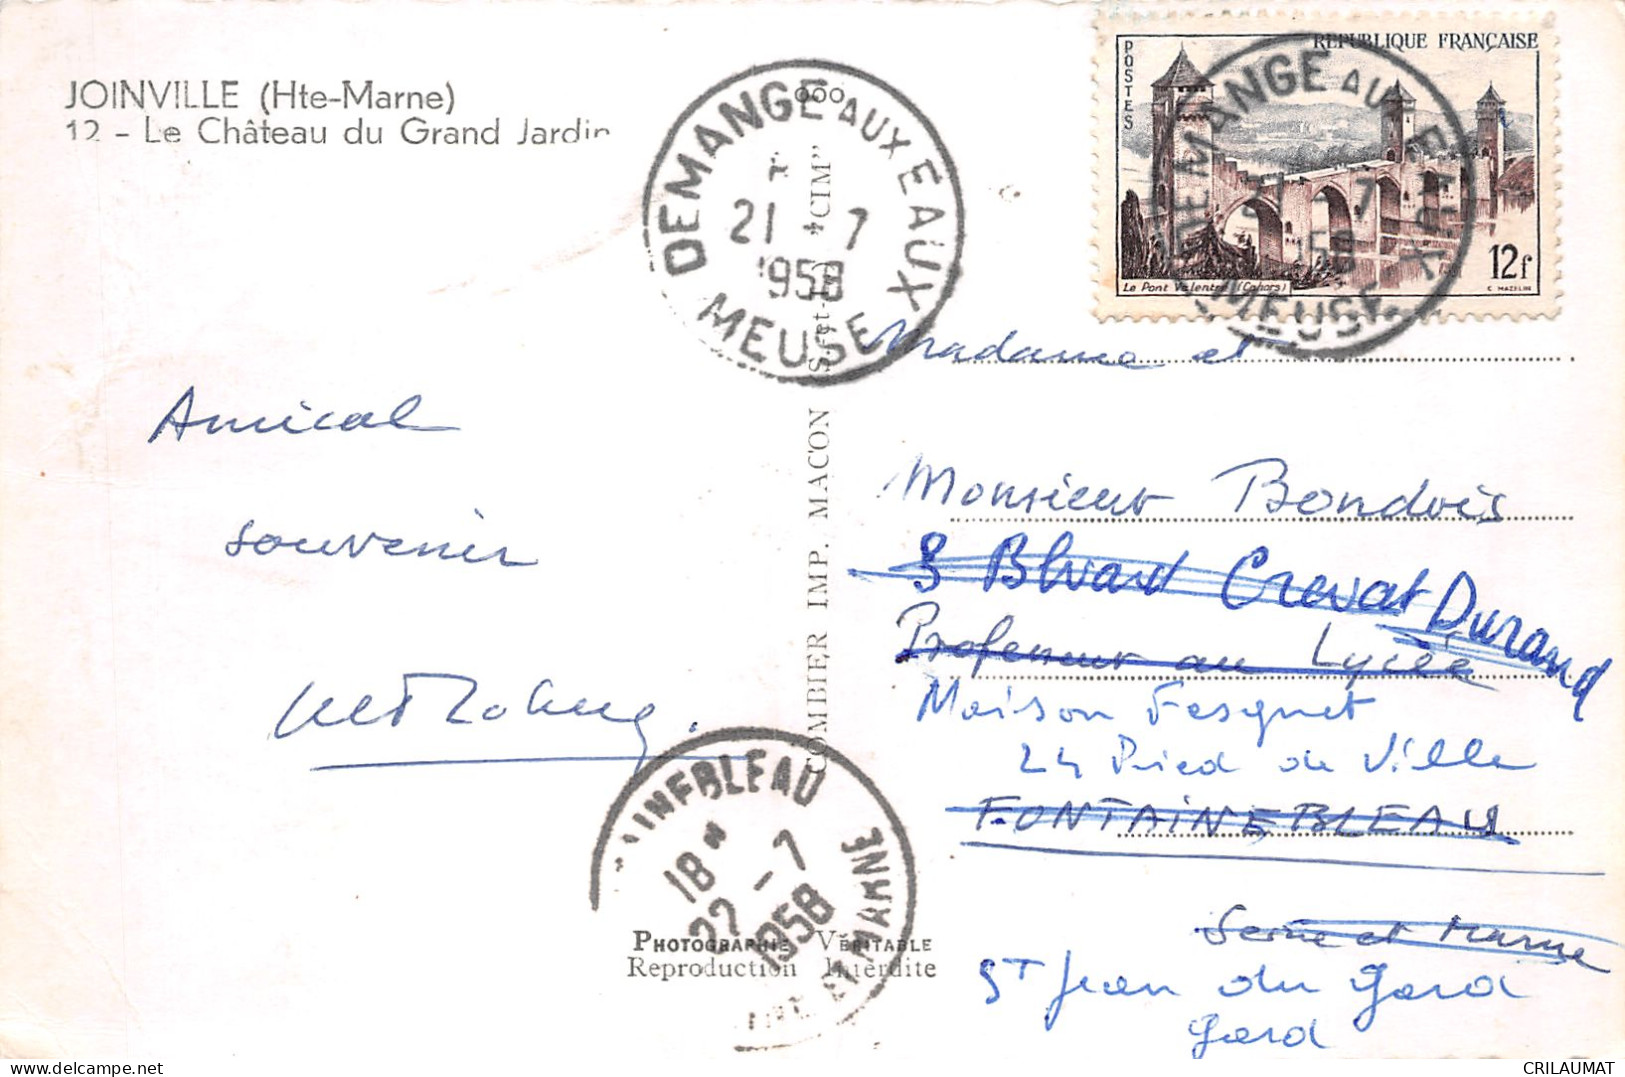 JOINVILLE (Hte-Marne)
12 - Le Château du Grand Jardin
DEMANGE AUX EAUX
21 - 7
1958
MEUSE
POSTES
RÉPUBLIQUE FRANÇAISE
Le Pont Valentré (Cahors)
12f
C. MAZELIN
DEMANGE AUX EAUX
MEUSE
COMBIER IMP. MACON "CIM"
Amical
souvenir
Madame et
Monsieur Bondois
3 Blvard Crevat Durand
Professeur au Lycée
Maison Fesquet
24 Pied de Ville
FONTAINEBLEAU
Seine et Marne
St Jean du Gard
Gard
AINEBLEAU
18H
22 - 7
1958
ET MARNE
PHOTOGRAPHIE VÉRITABLE
Reproduction Interdite
CRILAUMAT